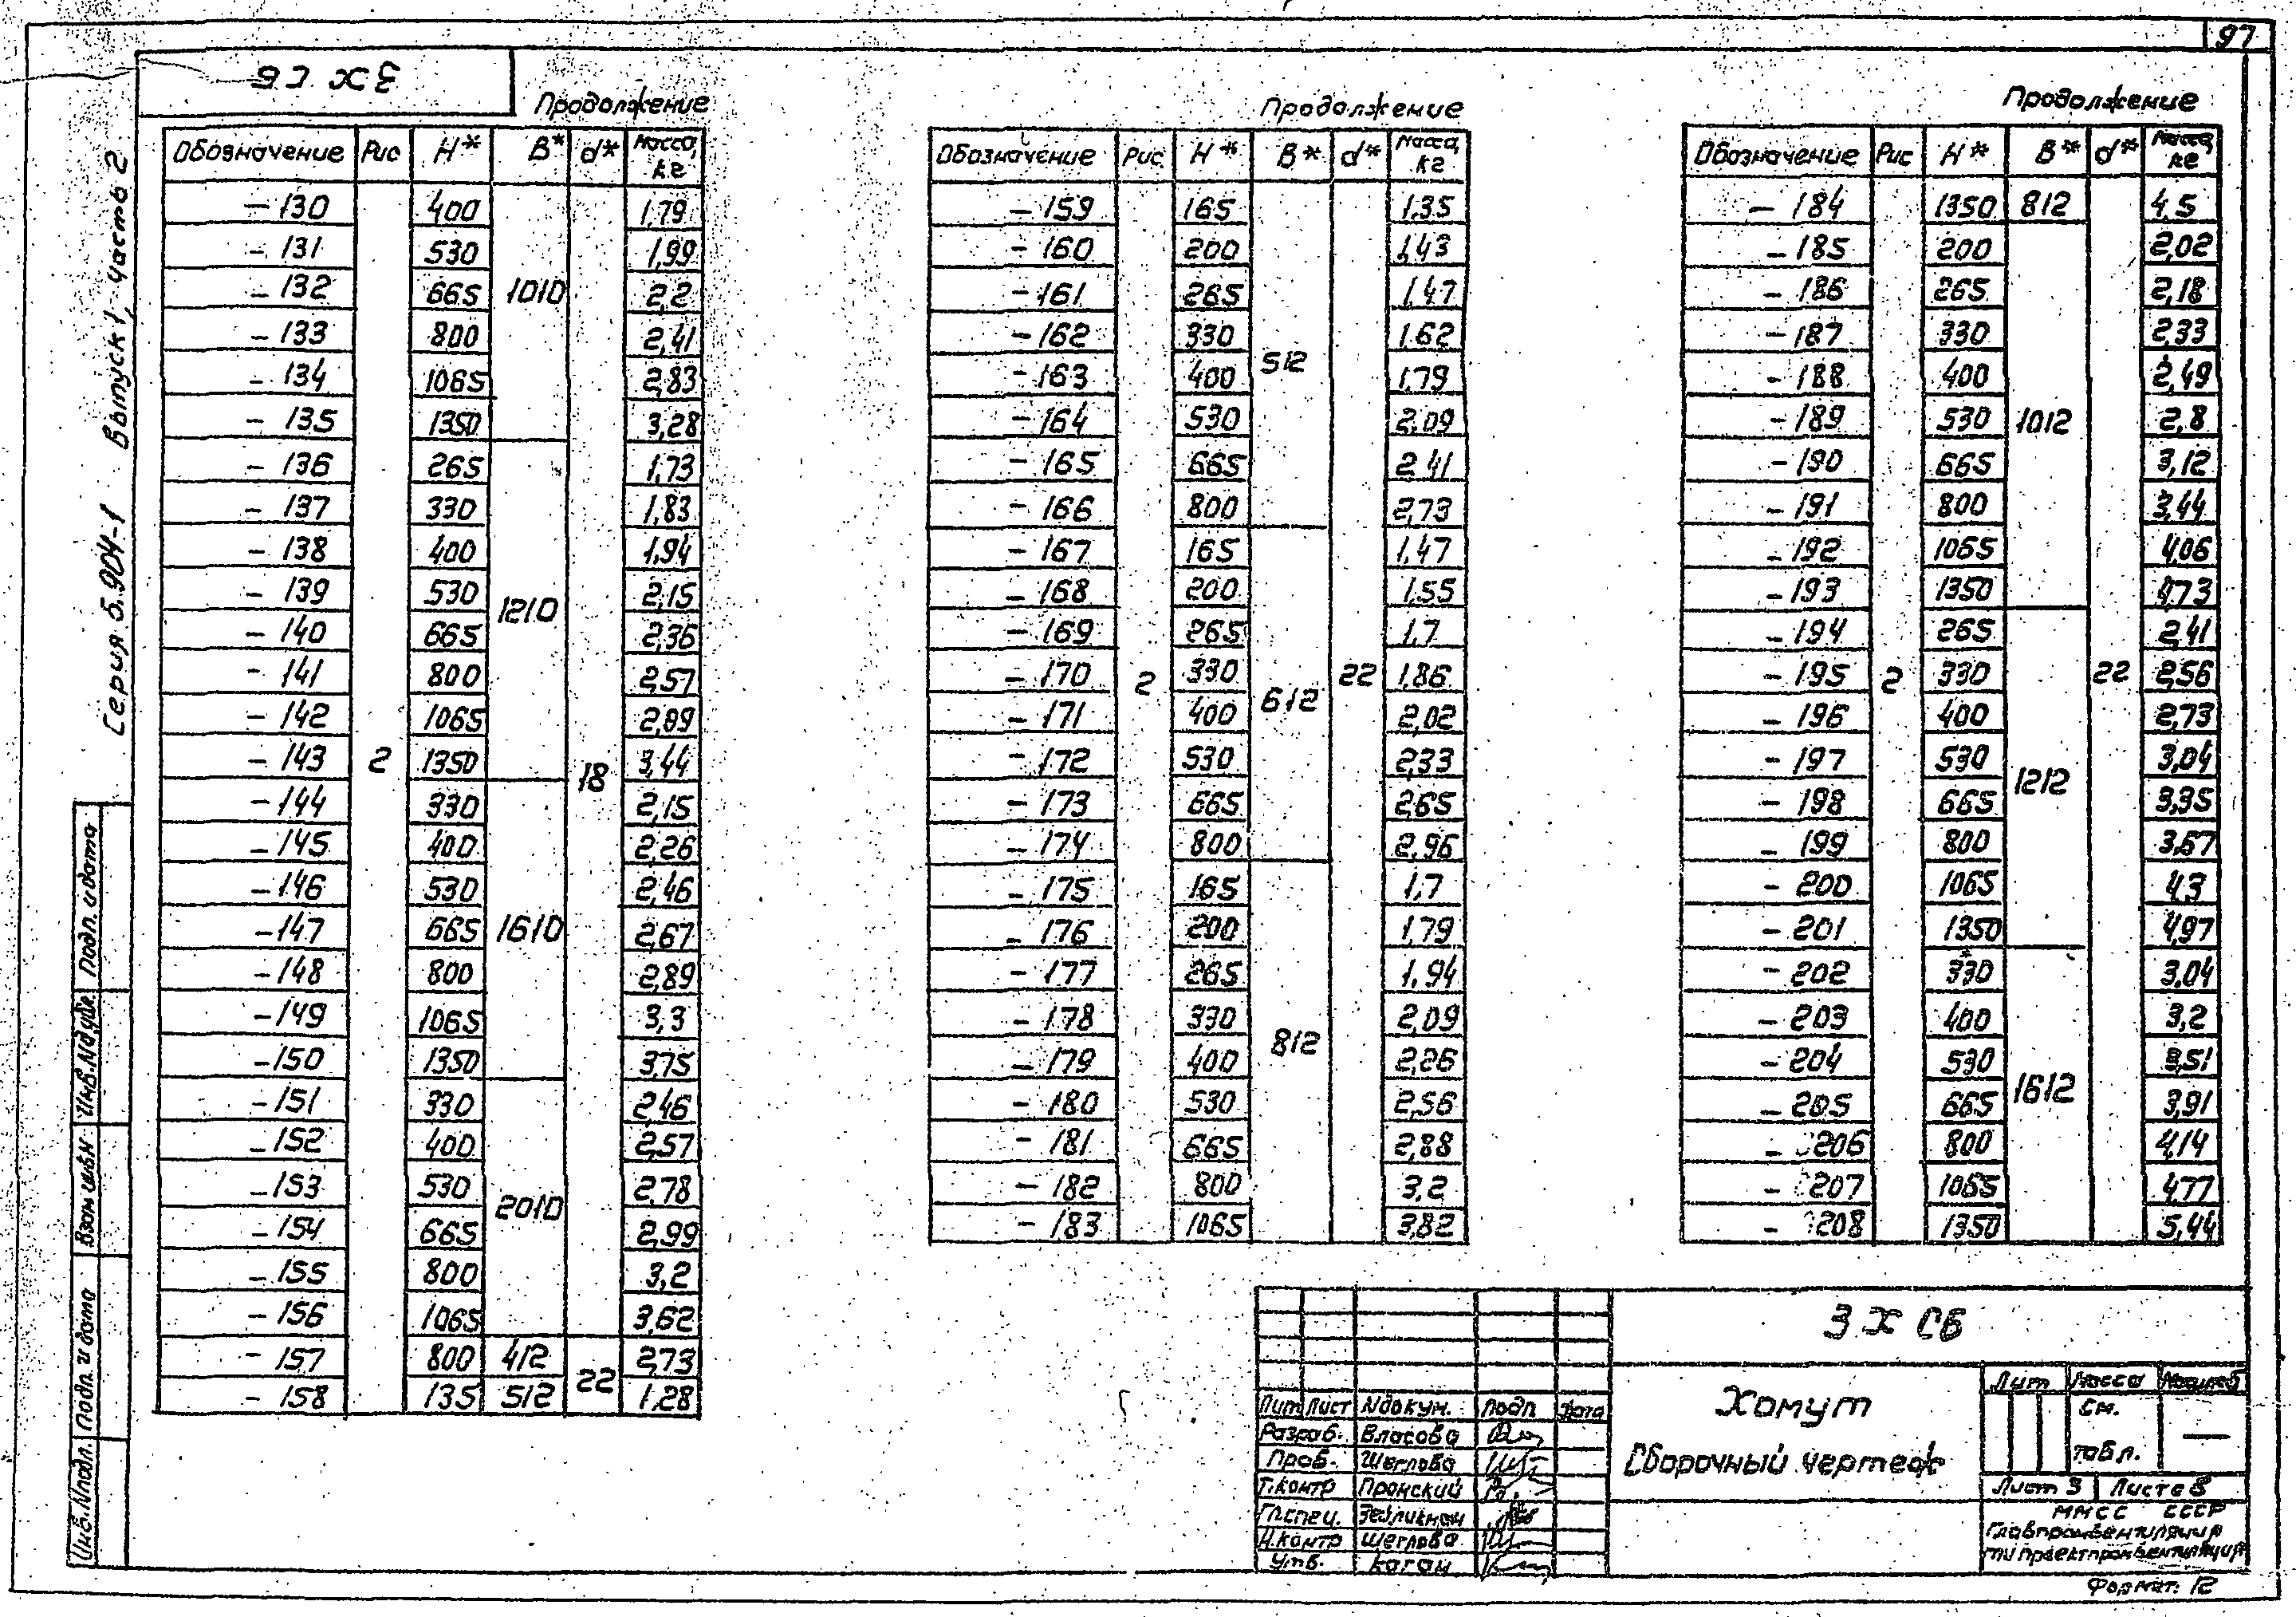 97
3Х СБ
Серия 5.904-1 Выпуск 1, часть 2
Продолжение
Обозначение Рис Н* В* d* Масса, кг
-130 400 1,79
-131 530 1,99
-132 665 1010 2,2
-133 800 2,41
-134 1065 2,83
-135 1350 3,28
-136 265 1,73
-137 330 1,83
-138 400 1,94
-139 530 1210 2,15
-140 665 2,36
-141 800 2,57
-142 1065 2,99
-143 2 1350 18 3,44
-144 330 2,15
-145 400 2,26
-146 530 2,46
-147 665 1610 2,67
-148 800 2,89
-149 1065 3,3
-150 1350 3,75
-151 330 2,46
-152 400 2,57
-153 530 2010 2,78
-154 665 2,99
-155 800 3,2
-156 1065 3,62
-157 800 412 22 2,73
-158 135 512 1,28
Продолжение
Обозначение Рис Н* В* d* Масса, кг
-159 165 1,35
-160 200 1,43
-161 265 1,47
-162 330 512 1,62
-163 400 1,79
-164 530 2,09
-165 665 2,41
-166 800 2,73
-167 165 1,47
-168 200 1,55
-169 265 1,7
-170 2 330 612 22 1,86
-171 400 2,02
-172 530 2,33
-173 665 2,65
-174 800 2,96
-175 165 1,7
-176 200 1,79
-177 265 1,94
-178 330 812 2,09
-179 400 2,26
-180 530 2,56
-181 665 2,88
-182 800 3,2
-183 1065 3,82
Продолжение
Обозначение Рис Н* В* d* Масса, кг
-184 1350 812 4,5
-185 200 2,02
-186 265 2,18
-187 330 2,33
-188 400 2,49
-189 530 1012 2,8
-190 665 3,12
-191 800 3,44
-192 1065 4,06
-193 1350 4,73
-194 265 2,41
-195 2 330 22 2,56
-196 400 2,73
-197 530 1212 3,04
-198 665 3,35
-199 800 3,67
-200 1065 4,3
-201 1350 4,97
-202 330 3,04
-203 400 3,2
-204 530 3,51
-205 665 1612 3,91
-206 800 4,14
-207 1065 4,77
-208 1350 5,44
Подп. и дата
Инв.N дубл.
Взам инв.N
Подп. и дата
Инв.N подл.
3 Х СБ
Хомут
Сборочный чертеж
Лит Масса Масштаб
См. табл. —
Лист 3 Листов 8
ММСС СССР
Главпромвентиляция
ГПИ Проектпромвентиляция
Лит Лист N докум. подп Дата
Разраб. Власова
Пров. Щеглова
Т.контр Пронский
Гл.спец.
Н.контр Щеглова
Утв. Каган
Формат: 12